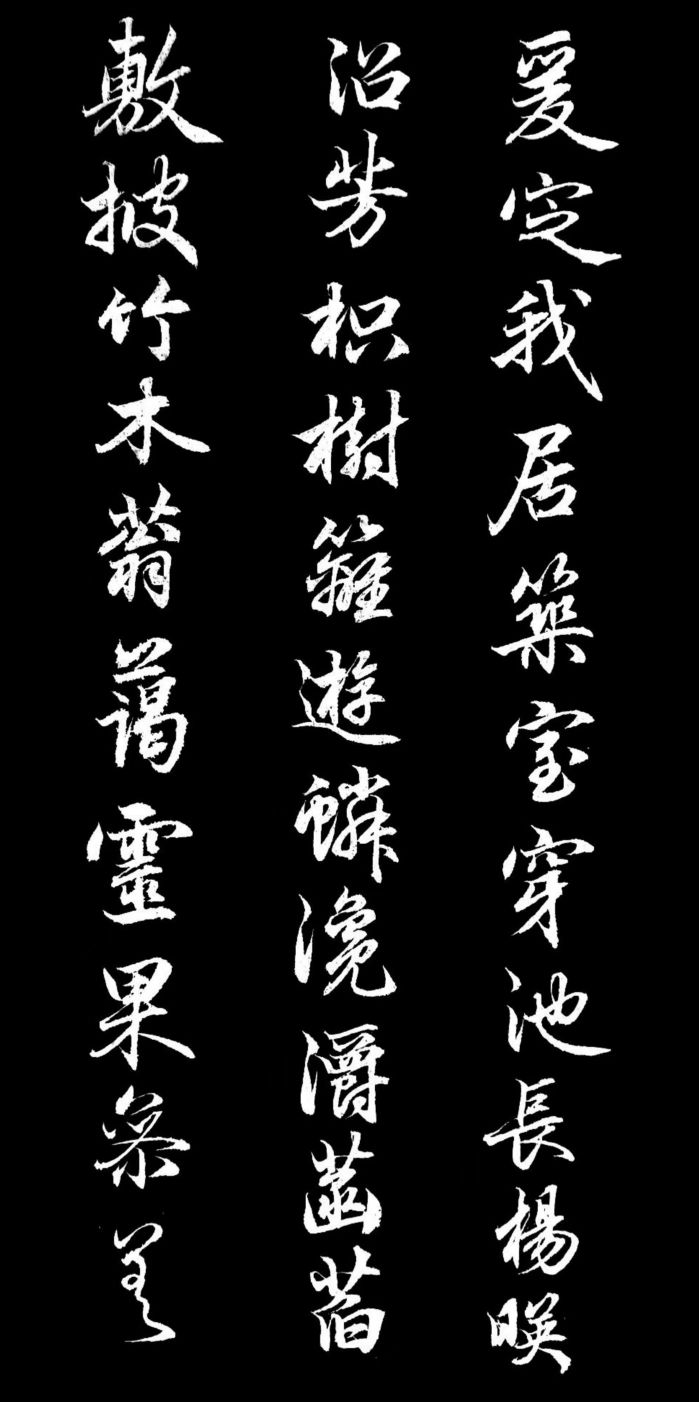 爰定我居築室穿池長楊暎
沼芳枳樹籬遊鱗瀺灂菡萏
敷披竹木蓊藹靈果參差